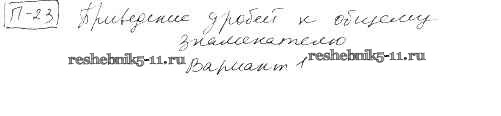 П-23 Приведение дробей к общему
знаменателю
reshebnik5-11.ru Вариант 1 reshebnik5-11.ru